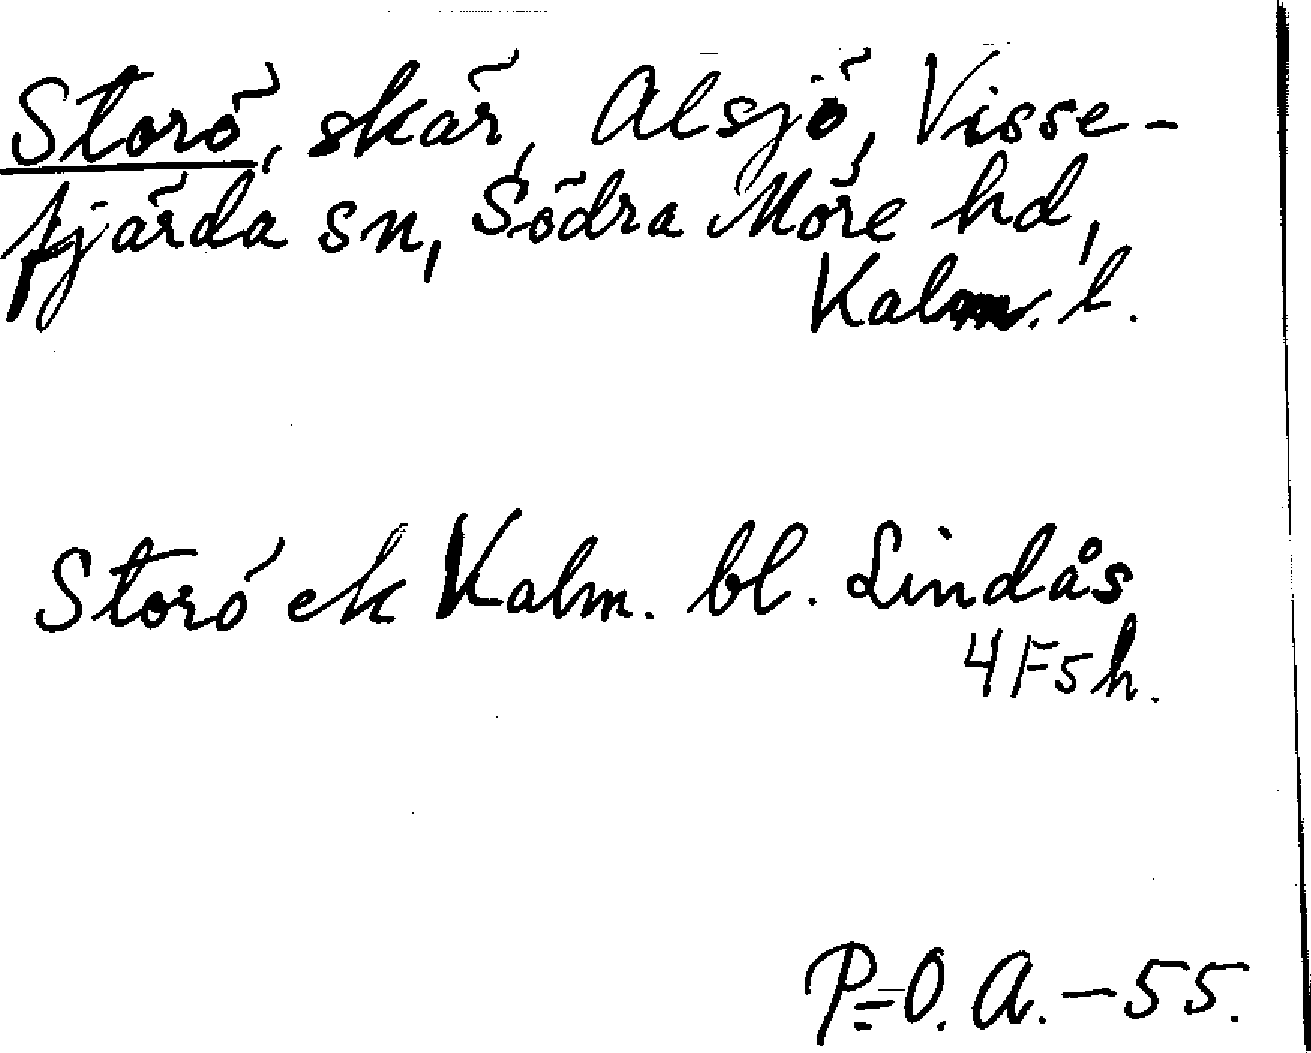 Storö, skär, Alsjö, Visse-
fjärda sn, Södra Möre hd,
Kalm. l.
Storö ek Kalm. bl. Lindås
4F5h.
P-O. A. - 55.